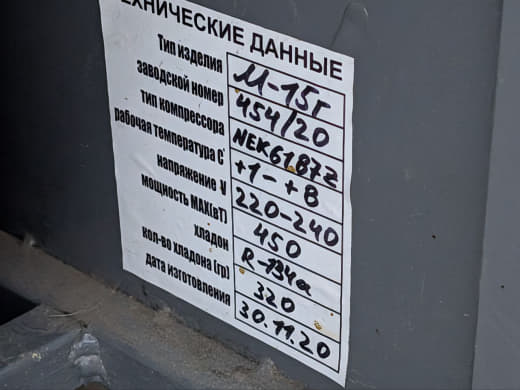 ТЕХНИЧЕСКИЕ ДАННЫЕ
Тип изделия М-15г
заводской номер 454/20
тип компрессора NEK6187Z
рабочая температура С° +1- +8
напряжение V 220-240
мощность MAX(вТ) 450
хладон R-134a
кол-во хладона (гр) 320
дата изготовления 30.11.20